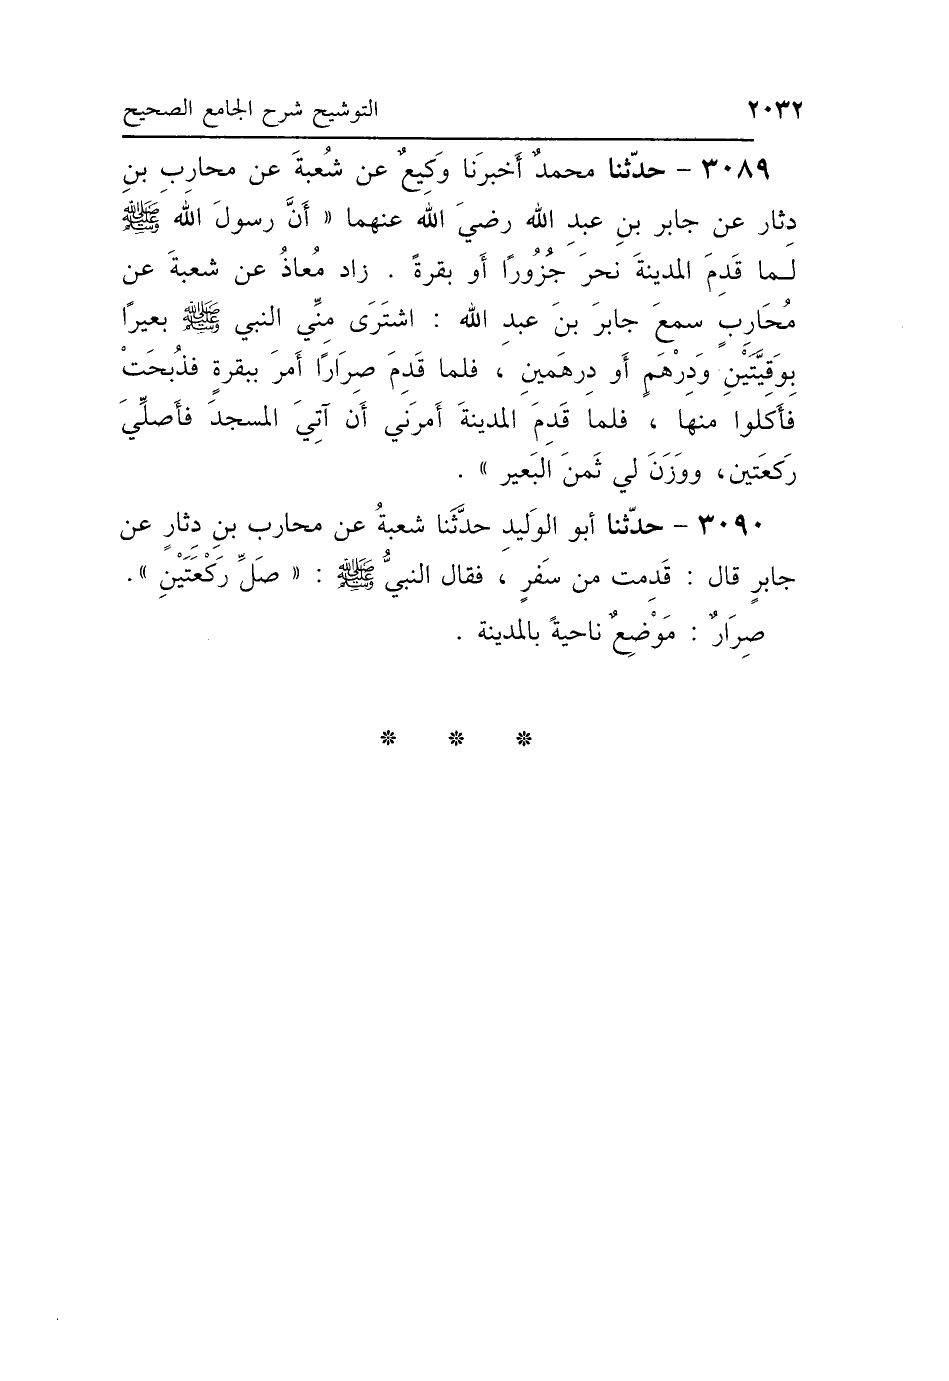 ٢٠٣٢ التوشيح شرح الجامع الصحيح
٣٠٨٩ - حدّثنا محمدٌ أخبرَنا وَكِيعٌ عن شُعبةَ عن محاربِ بنِ
دِثار عن جابر بنِ عبدِ الله رضيَ الله عنهما « أَنَّ رسولَ الله ﷺ
لـما قَدِمَ المدينةَ نحرَ جُزُورًا أَو بقرةً . زاد مُعاذُ عن شعبةَ عن
مُحَارِبٍ سمعَ جابرَ بنَ عبدِ الله : اشتَرَى مِنِّي النبي ﷺ بعيرًا
بوَقِيَّتَيْنِ وَدِرْهَمٍ أَو دِرهَمينِ ، فلما قَدِمَ صِرَارًا أَمرَ ببقرةٍ فذُبحَتْ
فأَكلوا منها ، فلما قَدِمَ المدينةَ أَمرَني أَن آتِيَ المسجدَ فأُصلِّيَ
رَكعَتين، ووَزَنَ لي ثَمنَ البَعير » .
٣٠٩٠ - حدّثنا أبو الوَليدِ حدَّثَنا شعبةُ عن محارب بنِ دِثارٍ عن
جابرٍ قال : قَدِمت من سَفرٍ ، فقال النبيُّ ﷺ : « صَلِّ رَكْعَتَيْنِ ».
صِرَارٌ : مَوْضِعٌ ناحيةً بالمدينة .
❊ ❊ ❊